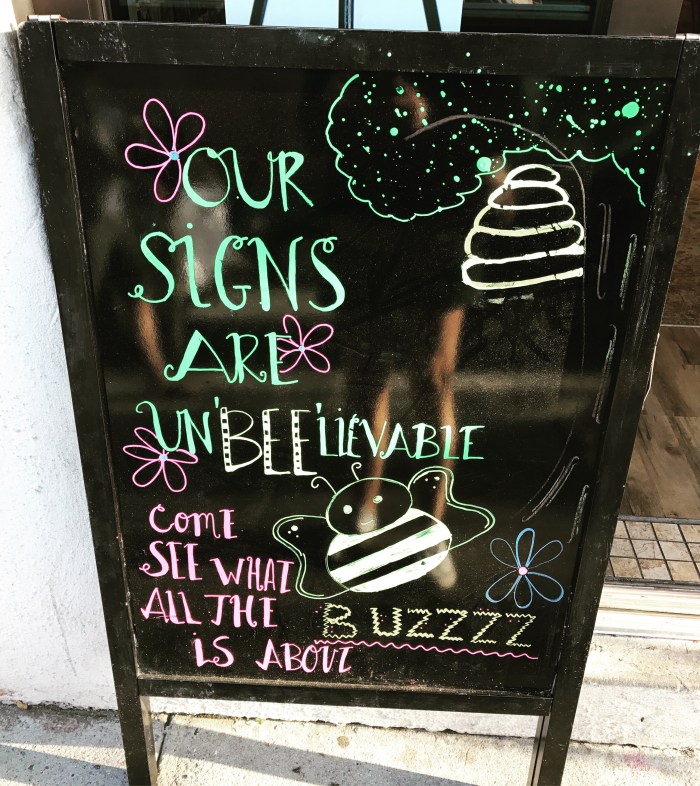 OUR
SIGNS
ARE
UN'BEE'LIEVABLE
COME
SEE WHAT
ALL THE
BUZZZZ
IS ABOUT